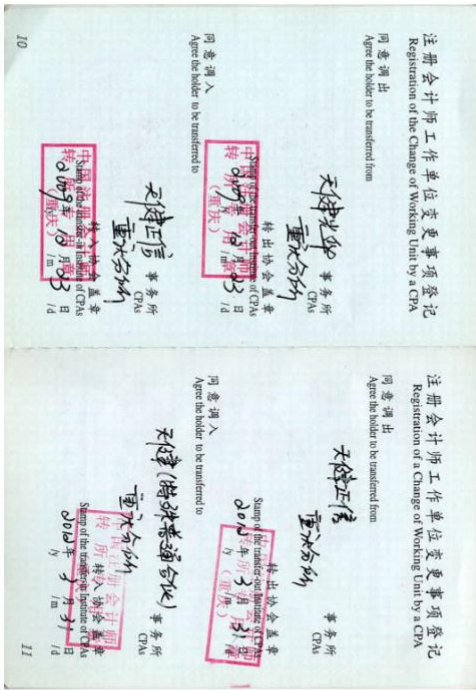 注册会计师工作单位变更事项登记
Registration of the Change of Working Unit by a CPA
同意调出
Agree the holder to be transferred from
天健光华
重庆分所
事务所
CPAs
转出协会盖章
Stamp of the transfer-out Institute of CPAs
2009年12月03日
/y /m /d
中国注册会计师
转所专用章
(重庆)
同意调入
Agree the holder to be transferred to
天健正信
重庆分所
事务所
CPAs
转入协会盖章
Stamp of the transfer-in Institute of CPAs
2009年12月03日
/y /m /d
中国注册会计师
转所专用章
(重庆)
10
注册会计师工作单位变更事项登记
Registration of a Change of Working Unit by a CPA
同意调出
Agree the holder to be transferred from
天健正信
重庆分所
事务所
CPAs
转出协会盖章
Stamp of the transfer-out Institute of CPAs
2012年3月31日
/y /m /d
(重庆)
同意调入
Agree the holder to be transferred to
天健(特殊普通合伙)
重庆分所
事务所
CPAs
转入协会盖章
Stamp of the transfer-in Institute of CPAs
2012年3月31日
/y /m /d
中国注册会计师
转所专用章
11